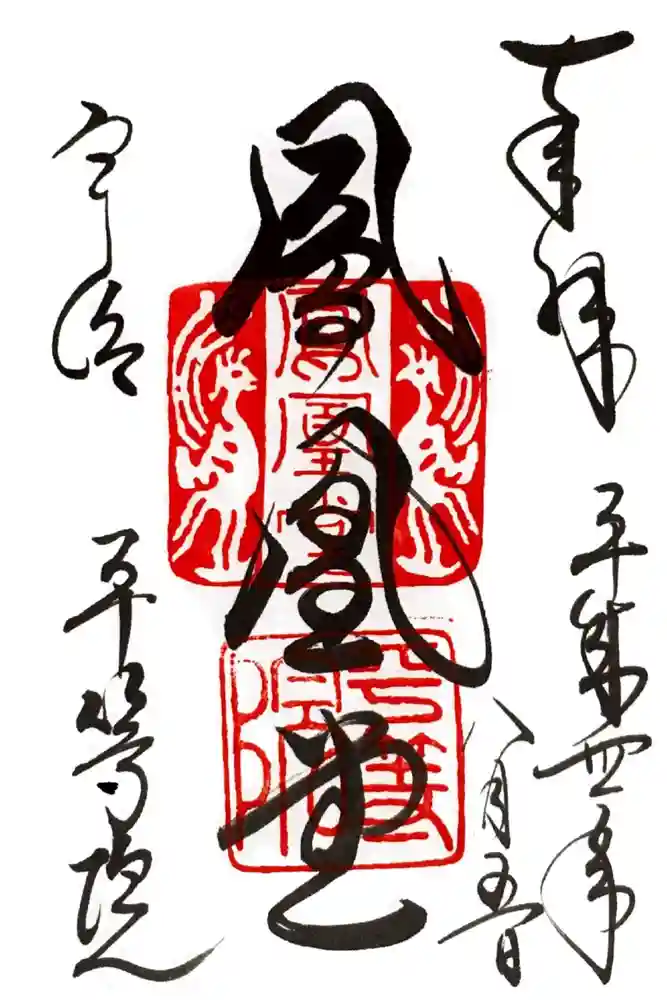 奉拝
平成四年
八月五日
鳳凰堂
鳳凰堂
平等院
宇治
平等院